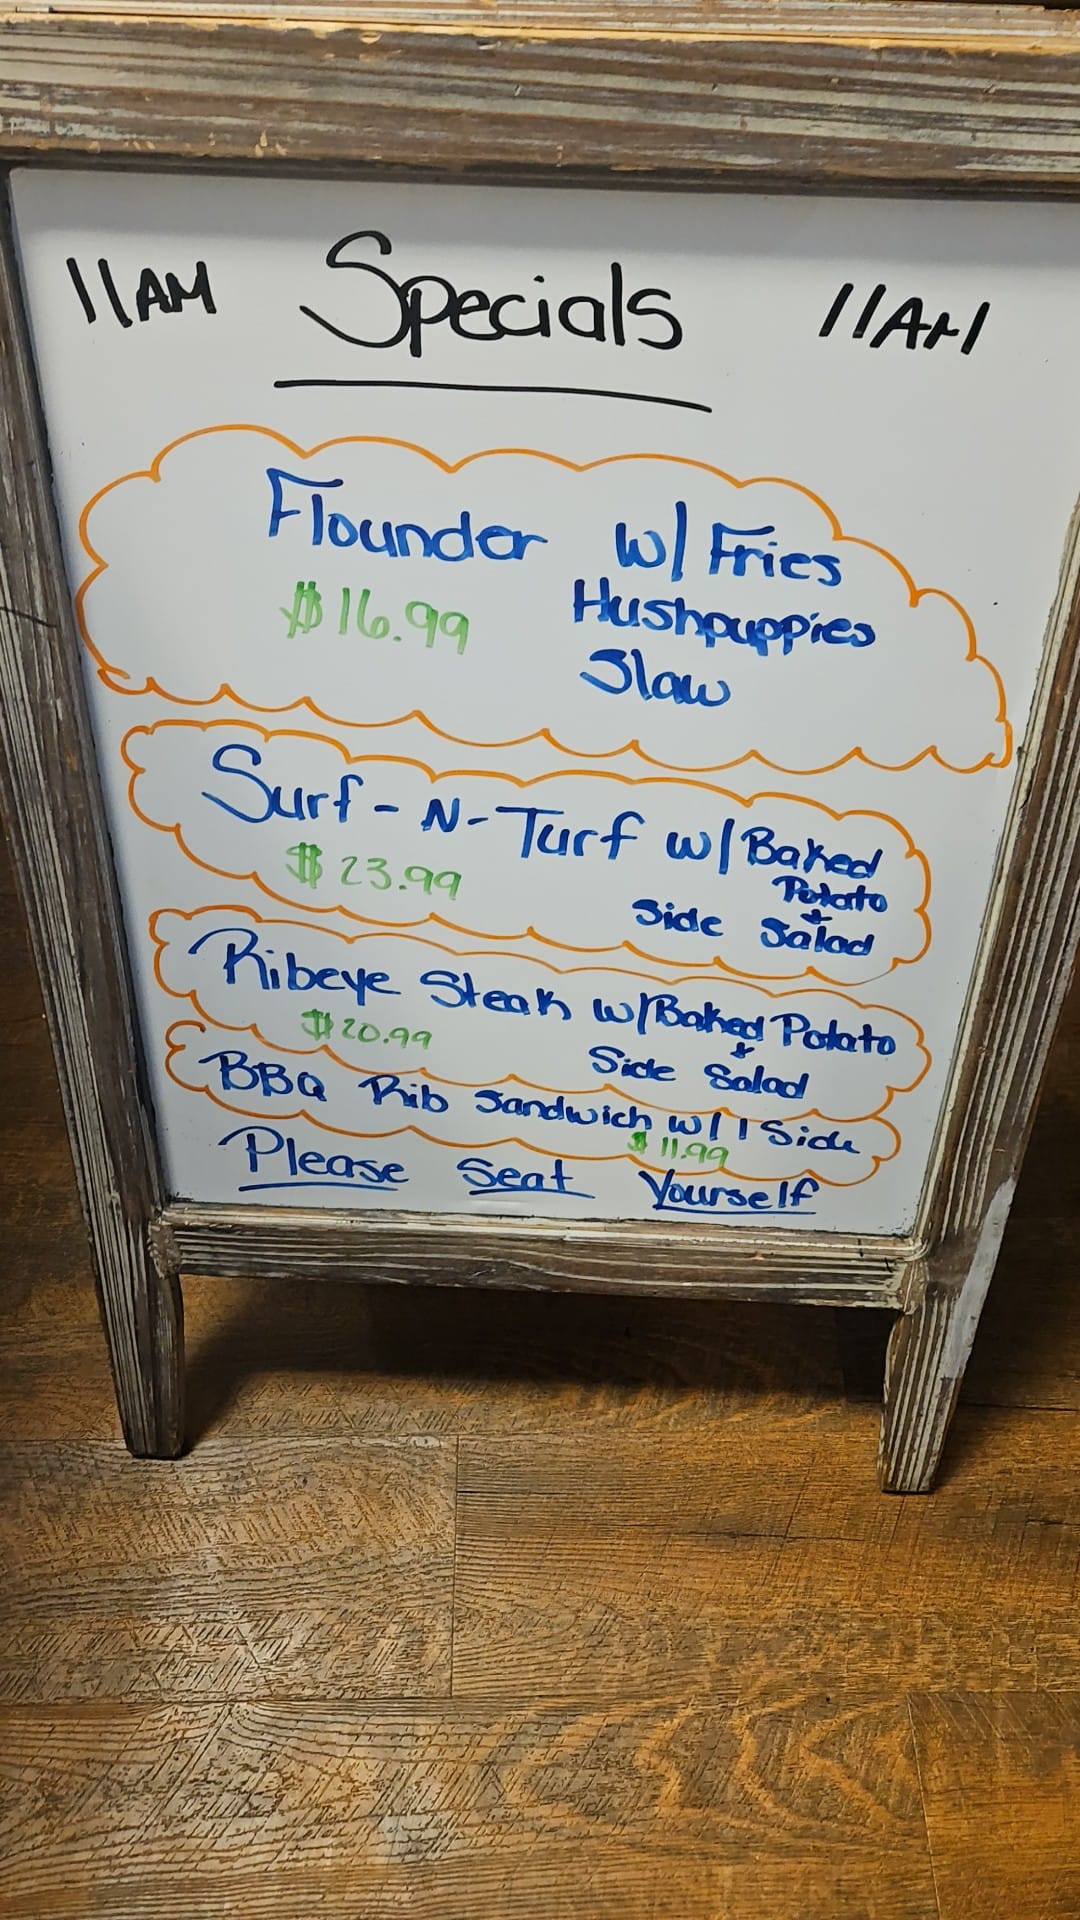 11AM Specials 11AM
Flounder w/ Fries
$16.99 Hushpuppies
Slaw
Surf-N-Turf w/ Baked
$23.99 Potato
+
Side Salad
Ribeye Steak w/ Baked Potato
$20.99 +
Side Salad
BBQ Rib Sandwich w/ 1 Side
$11.99
Please Seat Yourself